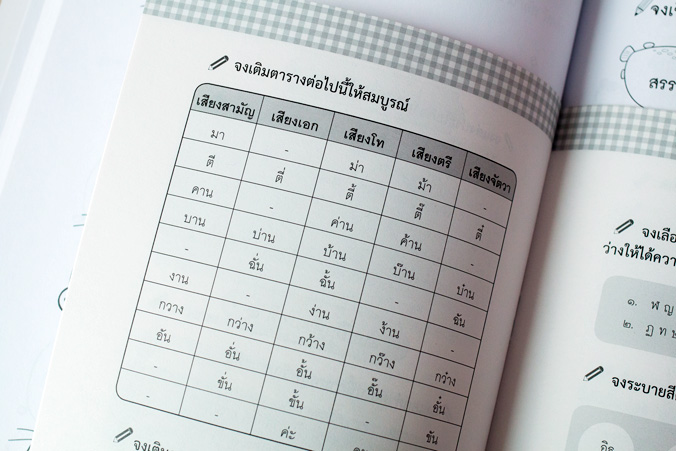 จงเติมตารางต่อไปนี้ให้สมบูรณ์
เสียงสามัญ เสียงเอก เสียงโท เสียงตรี เสียงจัตวา
มา - ม่า ม้า -
ตี ตี่ ตี้ ตี๊ ตี๋
คาน - ค่าน ค้าน -
บาน บ่าน บ้าน บ๊าน บ๋าน
- ฉั่น ฉั้น - ฉัน
งาน - ง่าน ง้าน -
กวาง กว่าง กว้าง กว๊าง กว๋าง
อัน อั่น อั้น อั๊น อั๋น
- ขั่น ขั้น - ขัน
- - ค่ะ
จงเติม
สรร
จงเลือ
ว่างให้ได้ควา
๑. ฬ ญ
๒. ฏ ท
จงระบายสี